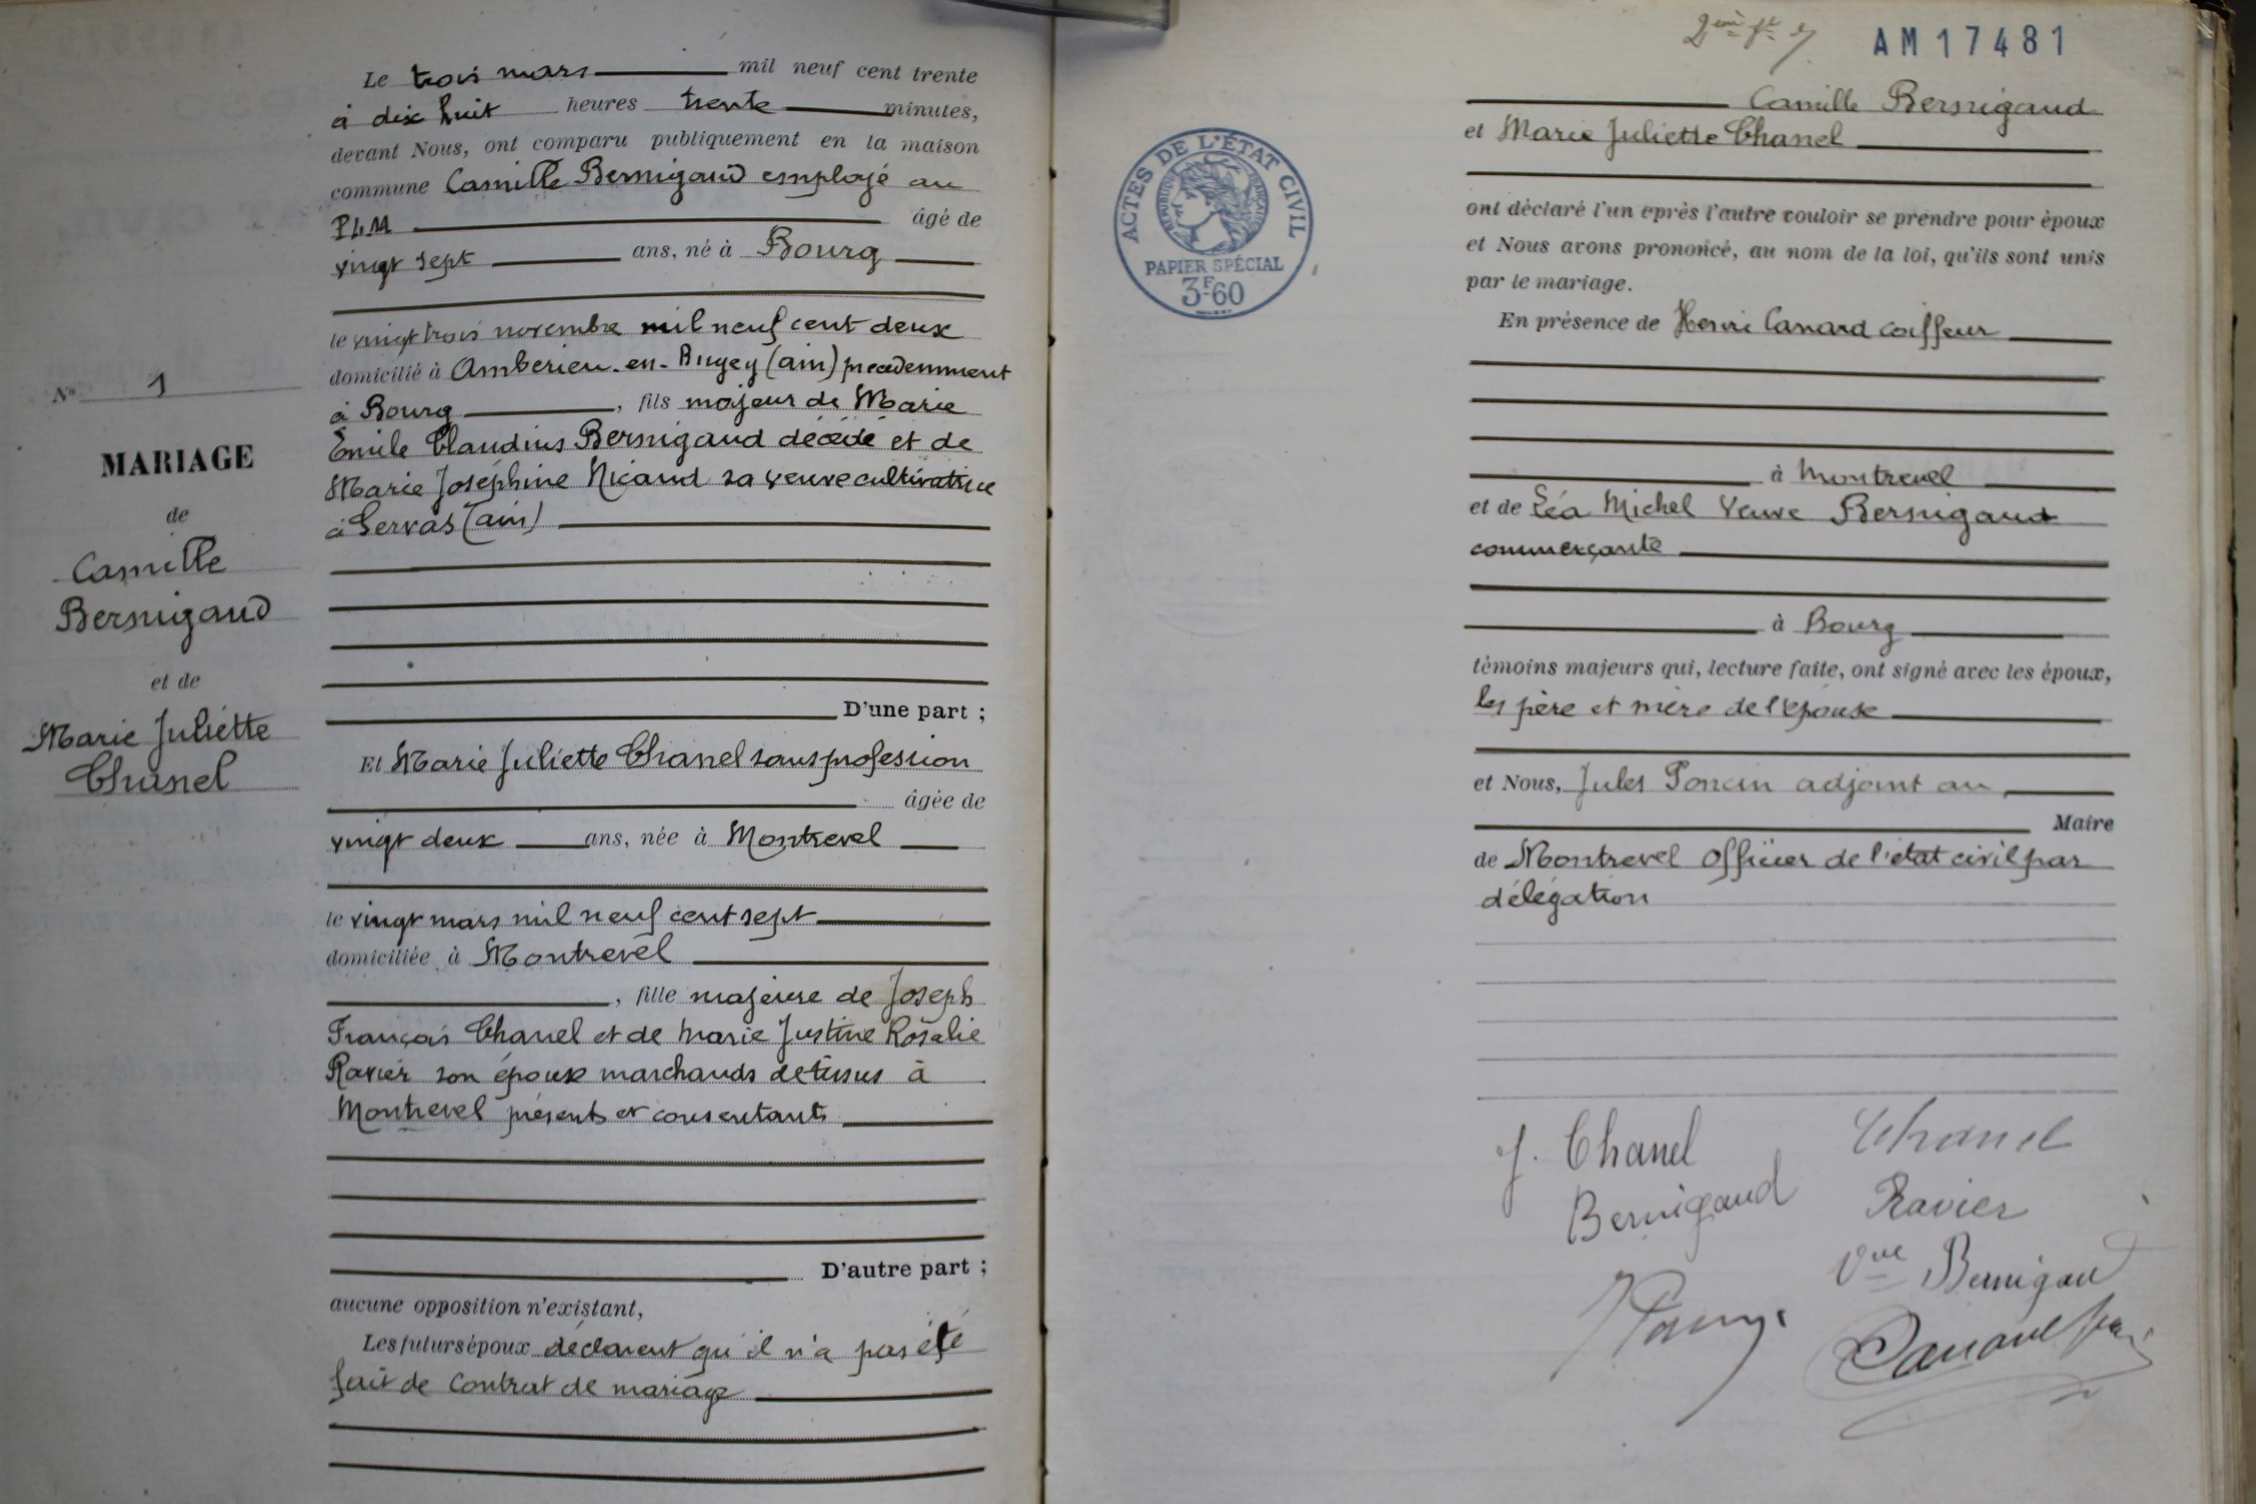 N° 1
MARIAGE
de
Camille
Bernigaud
et de
Marie Juliette
Chanel
Le trois mars mil neuf cent trente
à dix huit heures trente minutes,
devant Nous, ont comparu publiquement en la maison
commune Camille Bernigaud employé au
PLM âgé de
vingt sept ans, né à Bourg
le vingt trois novembre mil neuf cent deux
domicilié à Amberieu-en-Bugey (ain) precedemment
à Bourg, fils majeur de Marie
Emile Claudius Bernigaud décédé et de
Marie Joséphine Nicaud sa veuve cultivatrice
à Servas (ain)
D'une part ;
Et Marie Juliette Chanel sans profession
âgée de
vingt deux ans, née à Montrevel
le vingt mars mil neuf cent sept
domiciliée à Montrevel
, fille majeure de Joseph
François Chanel et de Marie Justine Rosalie
Ravier son épouse marchands de tissus à
Montrevel présents et consentants
D'autre part ;
aucune opposition n'existant,
Les futurs époux déclarent qu'il n'a pas été
fait de contrat de mariage
AM17481
ACTES DE L'ÉTAT CIVIL
RÉPUBLIQUE FRANÇAISE
PAPIER SPÉCIAL
3F60
Camille Bernigaud
et Marie Juliette Chanel
ont déclaré l'un eprès l'autre vouloir se prendre pour époux
et Nous avons prononcé, au nom de la loi, qu'ils sont unis
par le mariage.
En présence de Henri Canard coiffeur
à Montrevel
et de Léa Michel Veuve Bernigaud
commerçante
à Bourg
témoins majeurs qui, lecture faite, ont signé avec les époux,
les père et mère de l'épouse
et Nous, Jules Poncin adjoint au
Maire
de Montrevel Officier de l'état civil par
délégation
J. Chanel
Chanel
Bernigaud
Ravier
Vve Bernigaud